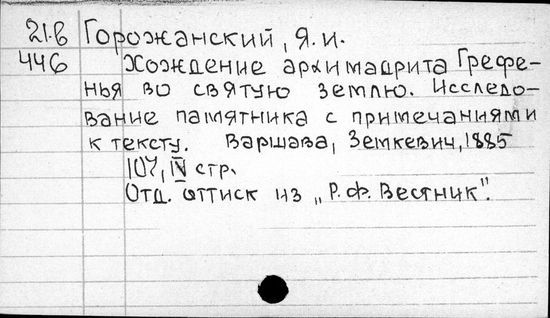 21.в Горожанский, Я. И.
446 Хождение архимадрита Грефе-
нья во святую землю. Исследо-
вание памятника с примечаниями
к тексту. Варшава, Земкевич, 1885
107, IV стр.
Отд. оттиск из „Р. Ф. Вестник".